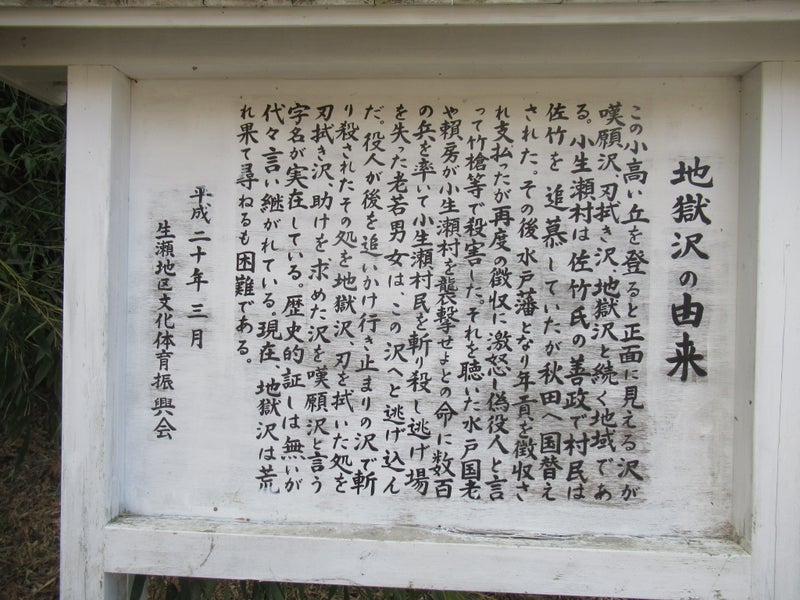 地獄沢の由来
この小高い丘を登ると正面に見える沢が
嘆願沢、刃拭き沢、地獄沢と続く地域であ
る。小生瀬村は佐竹氏の善政で村民は
佐竹を追慕していたが秋田へ国替え
された。その後水戸藩となり年貢を徴収さ
れ支払ったが再度の徴収に激怒し偽役人と言
って竹槍等で殺害した。それを聴いた水戸国老
や頼房が小生瀬村を襲撃せよとの命に数百
の兵を率いて小生瀬村民を斬り殺し逃げ場
を失った老若男女は、この沢へと逃げ込ん
だ。役人が後を追いかけ行き止まりの沢で斬
り殺されたその処を地獄沢、刃を拭いた処を
刃拭き沢、助けを求めた沢を嘆願沢と言う
字名が実在している。歴史的証しは無いが
代々言い継がれている。現在、地獄沢は荒
れ果て尋ねるも困難である。
平成二十年三月
生瀬地区文化体育振興会